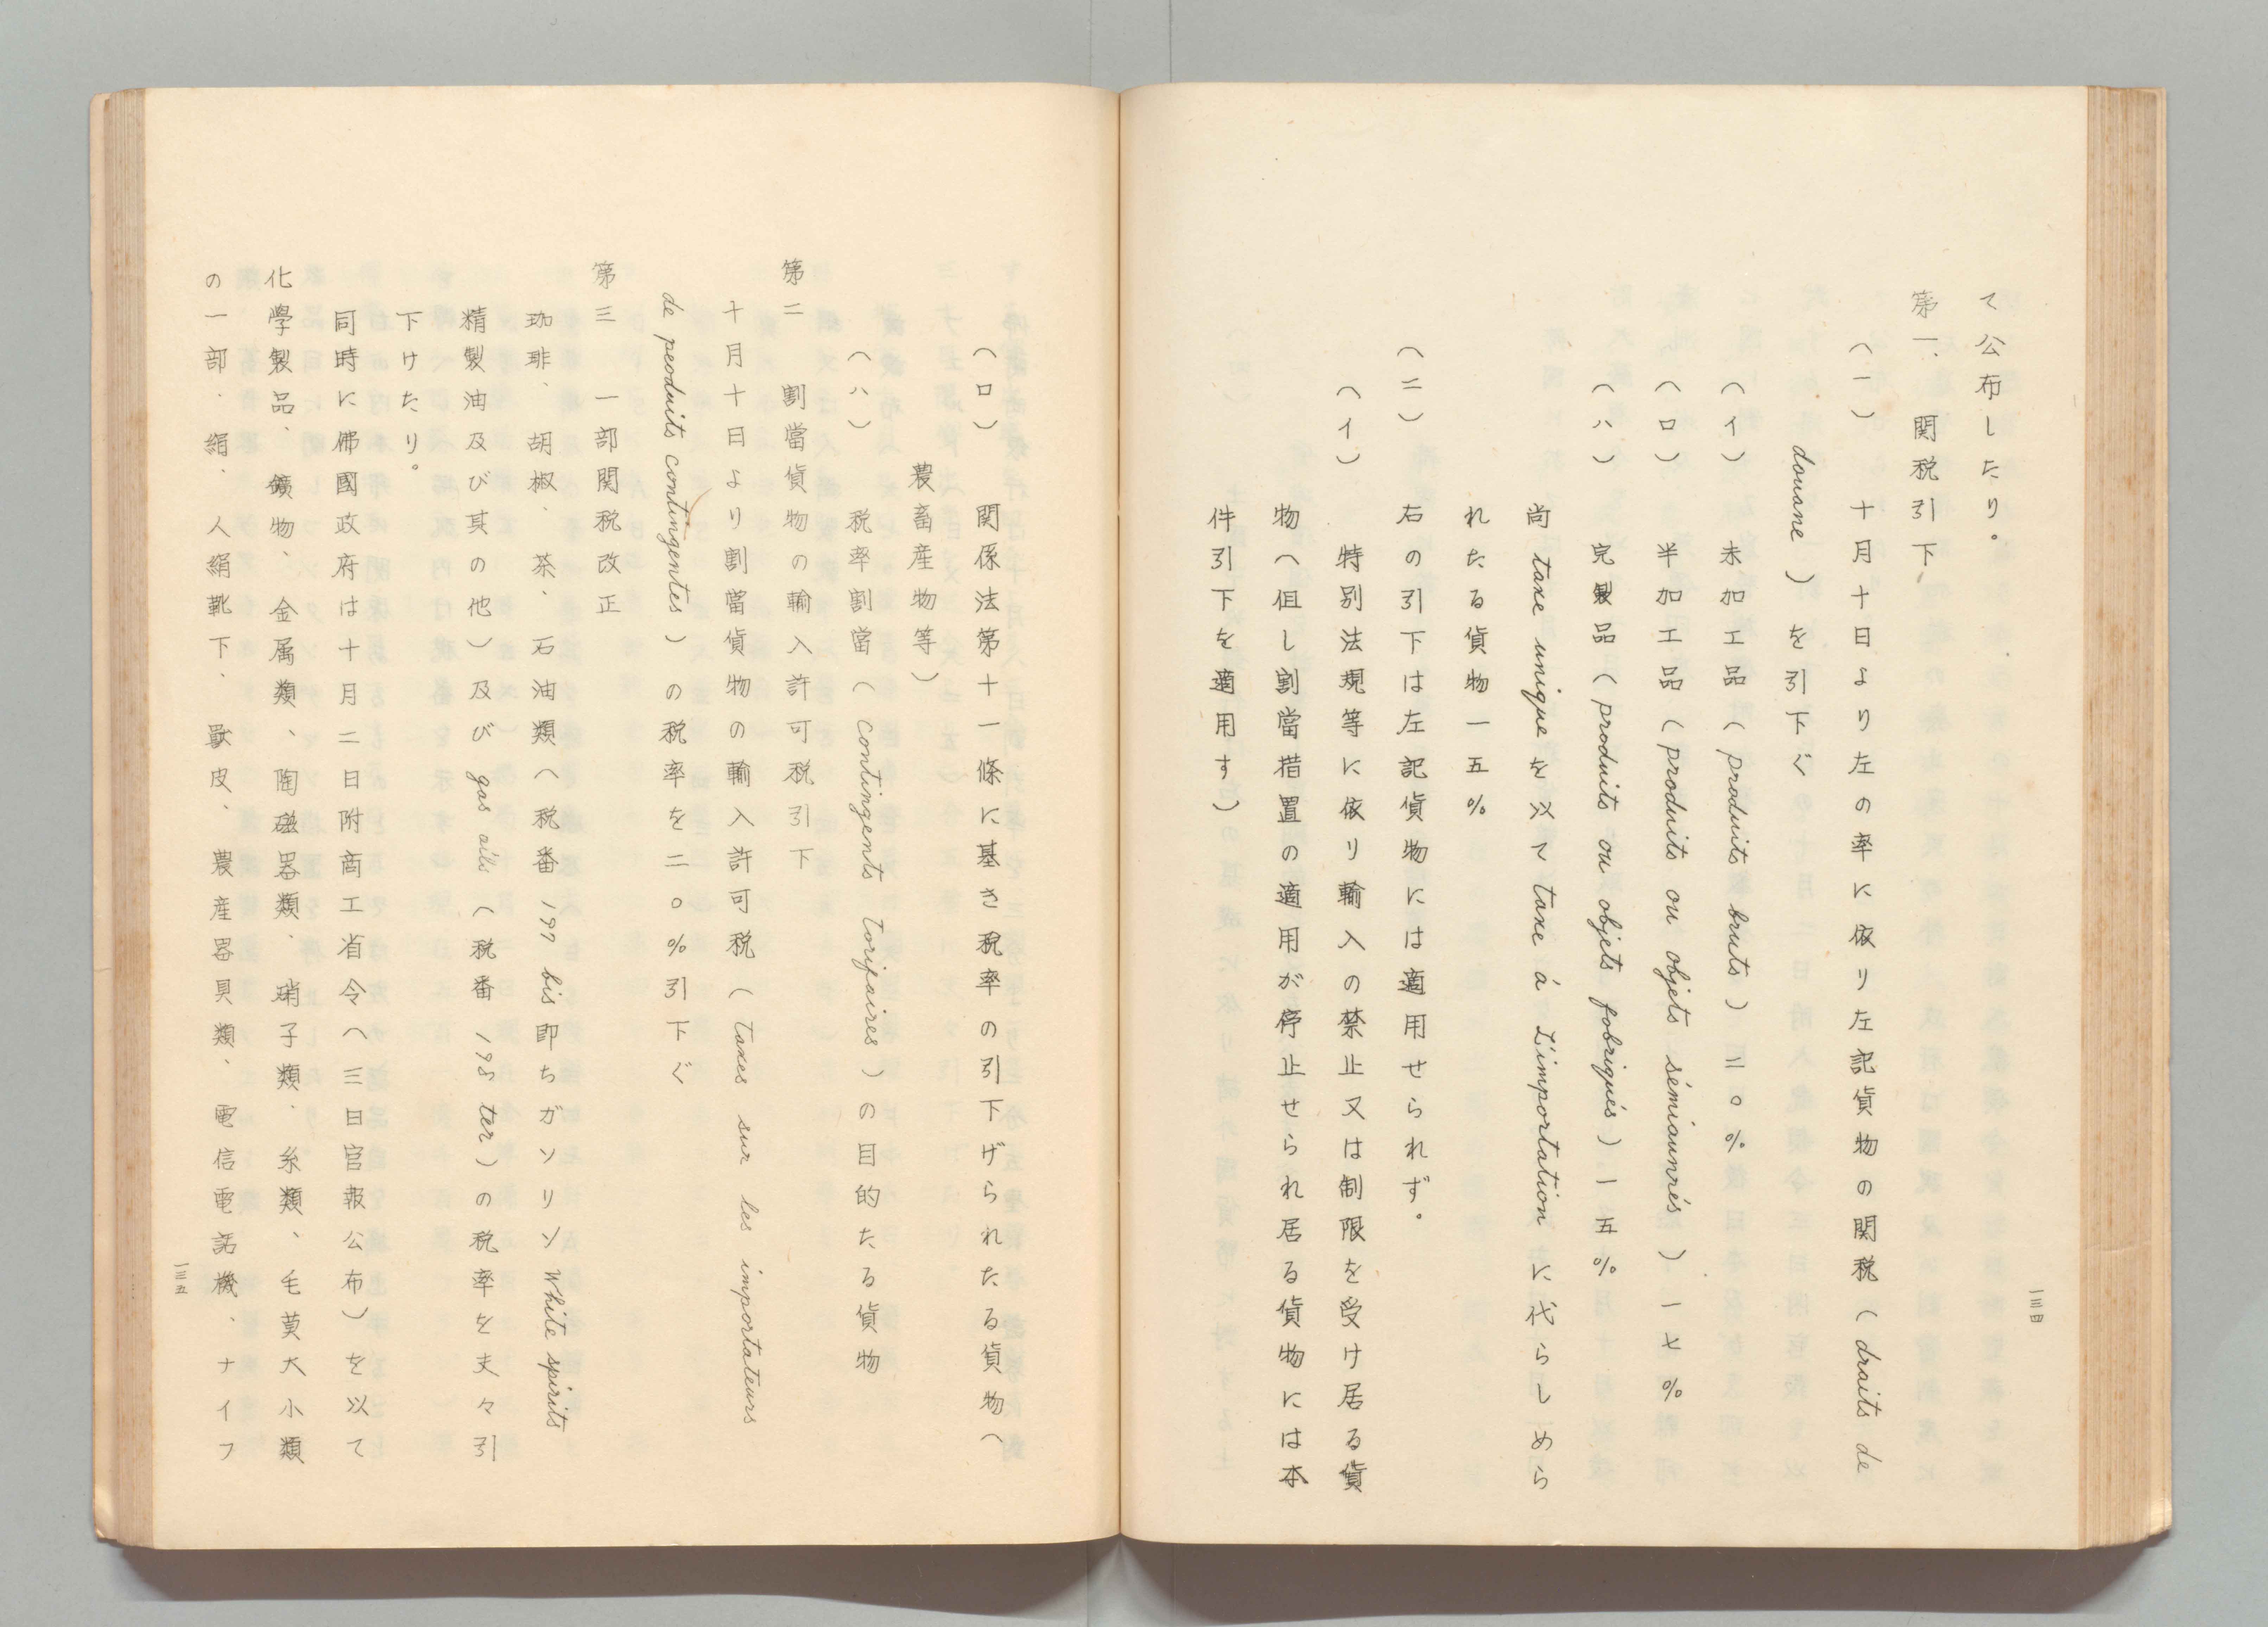 て公布したり。
第一、関税引下
(一) 十月十日より左の率に依り左記貨物の関税(draits de
douane)を引下ぐ
(イ) 未加工品(produits bruts)二〇%
(ロ) 半加工品(produits ou objets sémiounrés)一七%
(ハ) 完製品(produits ou objets fobriqués)一五%
尚 taxe unique を以て taxe á L'importation に代らしめら
れたる貨物一五%
(二) 右の引下は左記貨物には適用せられず。
(イ) 特別法規等に依り輸入の禁止又は制限を受け居る貨
物(但し割當措置の適用が停止せられ居る貨物には本
件引下を適用す)
一三四
(ロ) 関係法第十一條に基き税率の引下げられたる貨物(
農畜産物等)
(ハ) 税率割當(Contingents Toripaires)の目的たる貨物
第二 割當貨物の輸入許可税引下
十月十日より割當貨物の輸入許可税(Taxes sur les importateurs
de peoduits contingentes)の税率を二〇%引下ぐ
第三 一部関税改正
珈琲、胡椒、茶、石油類(税番 197 bis 即ちガソリン White spirits
精製油及び其の他)及び gas oils(税番 198 ter)の税率を夫々引
下けたり。
同時に佛國政府は十月二日附商工省令(三日官報公布)を以て
化學製品、鑛物、金属類、陶磁器類、硝子類、糸類、毛莫大小類
の一部、絹、人絹靴下、獸皮、農産器具類、電信電話機、ナイフ
一三五